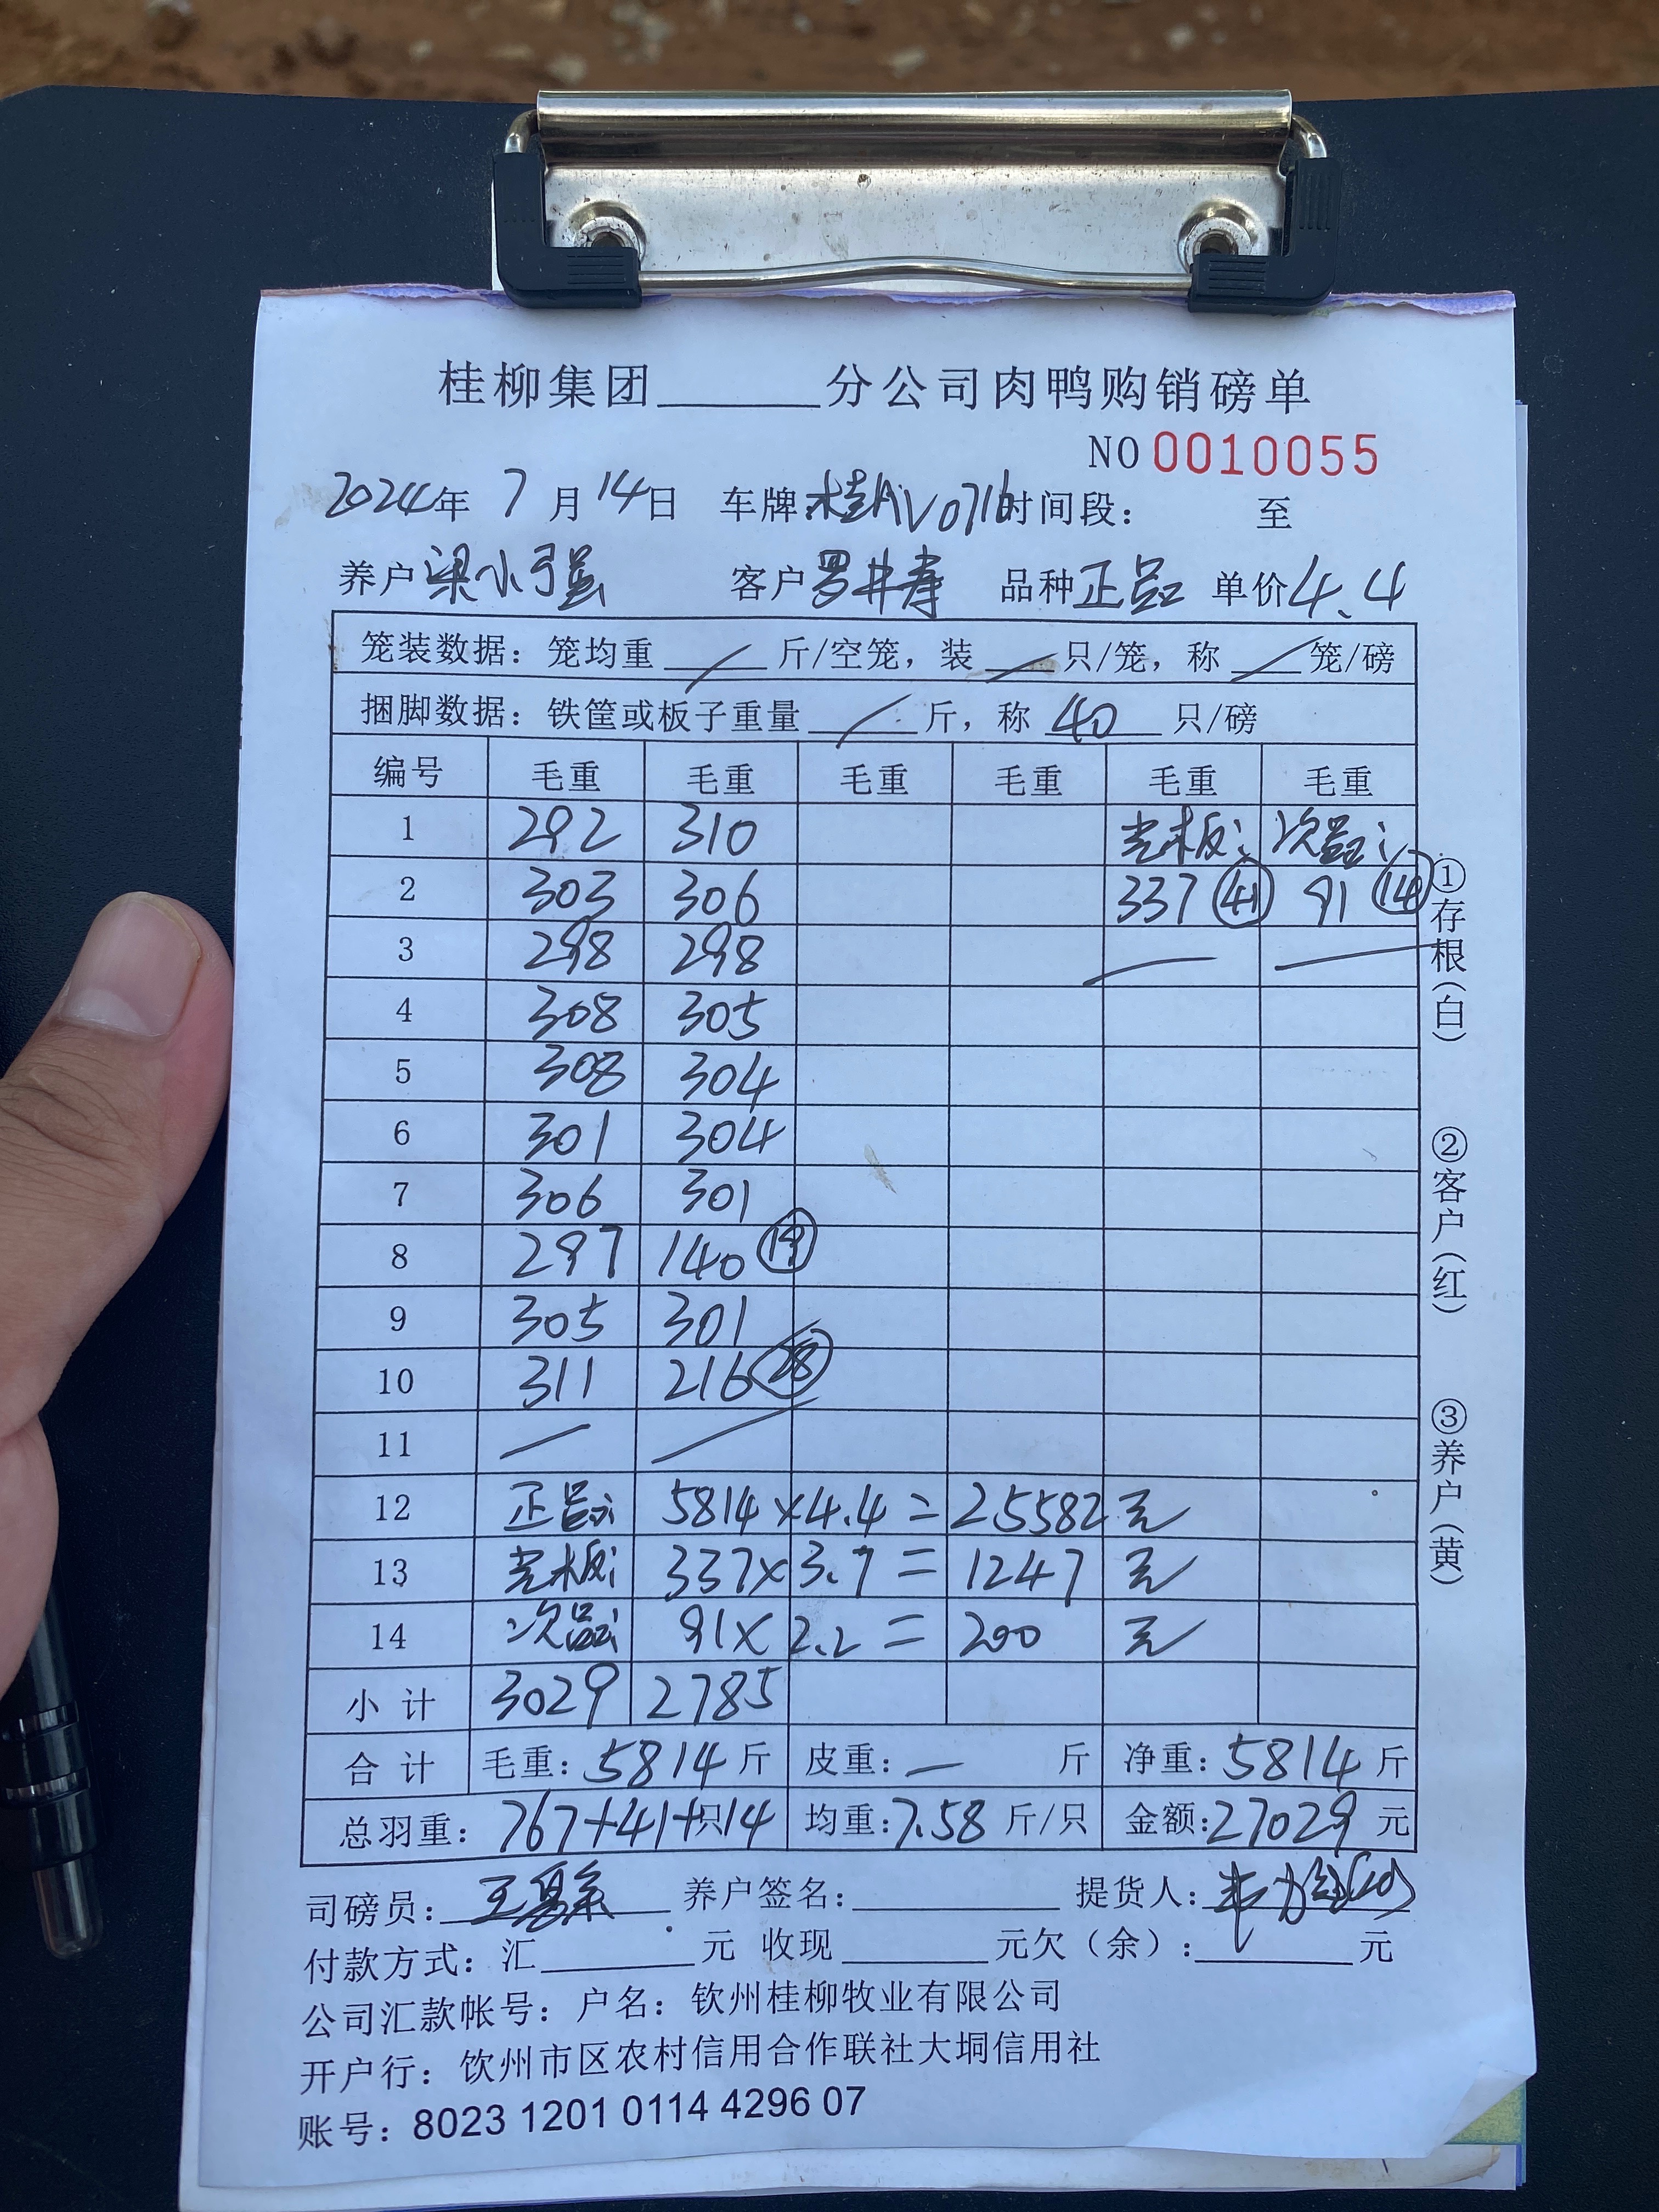 桂柳集团______分公司肉鸭购销磅单
NO 0010055
2024年 7月14日 车牌:桂AV0716 时间段: 至
养户 梁小强 客户 罗井寿 品种 正品 单价 4.4
笼装数据:笼均重 / 斤/空笼,装 / 只/笼,称 / 笼/磅
捆脚数据:铁筐或板子重量 / 斤,称 40 只/磅
编号 毛重 毛重 毛重 毛重 毛重 毛重
1 292 310 光板: 次品:
2 303 306 337 (41) 91 (14)
3 298 298 — —
4 308 305
5 308 304
6 301 304
7 306 301
8 297 140 (19)
9 305 301
10 311 216 (28)
11 / /
12 正品: 5814×4.4=25582元
13 光板: 337×3.7=1247元
14 次品: 91×2.2=200元
小计 3029 2785
合计 毛重:5814斤 皮重:— 斤 净重:5814斤
总羽重:767+41+14只 均重:7.58斤/只 金额:27029元
司磅员: 养户签名: 提货人:
付款方式:汇______元 收现______元欠(余):______元
公司汇款帐号:户名:钦州桂柳牧业有限公司
开户行:钦州市区农村信用合作联社大垌信用社
账号:8023 1201 0114 4296 07
①存根(白)
②客户(红)
③养户(黄)